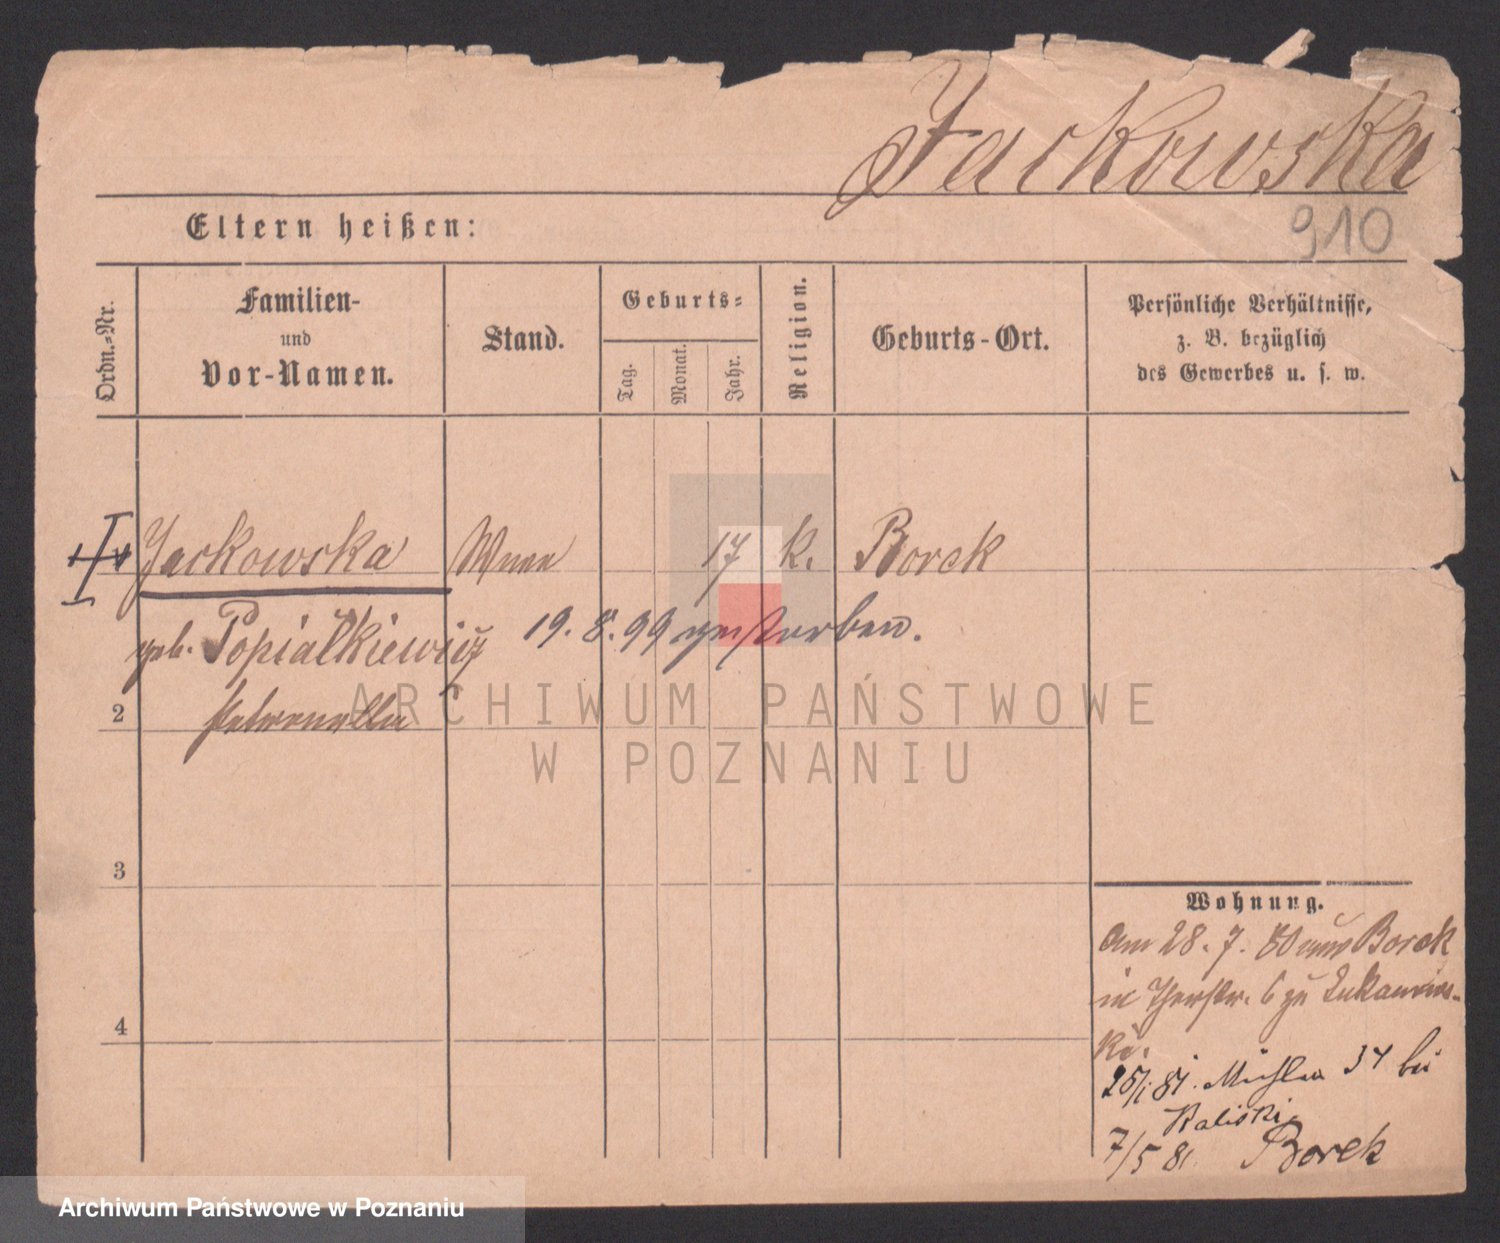 Jackowska
910
Eltern heißen:
Ordn.-Nr.
Familien-
und
Vor-Namen.
Stand.
Geburts-
Tag.
Monat.
Jahr.
Religion.
Geburts-Ort.
Persönliche Verhältnisse,
z. B. bezüglich
des Gewerbes u. s. w.
Jackowska Wwe 17 k. Borek
geb. Popialkiewicz 19. 8. 99 gestorben.
2 Petronella
3
4
Wohnung.
Am 28. 7. 80 aus Borek
in Thorstr. 6 zu Lukaniews-
ki.
25/1 81. Mühlen 34 bei
Kaliski
7/5 81 Borek
ARCHIWUM PAŃSTWOWE
W POZNANIU
Archiwum Państwowe w Poznaniu